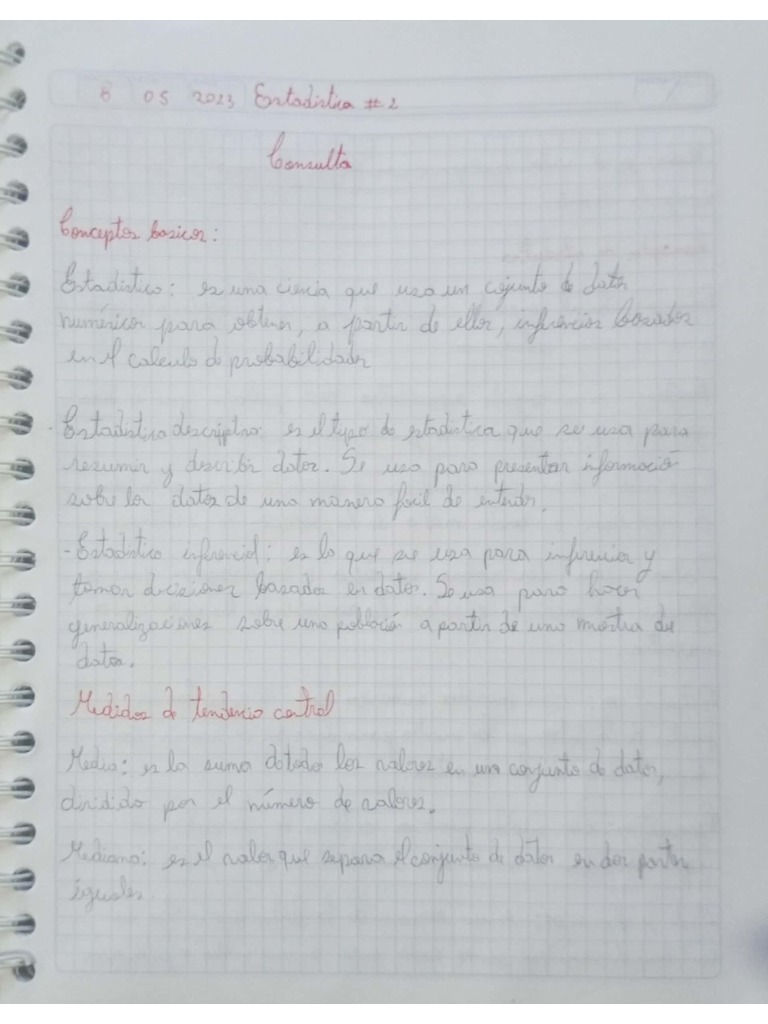 8 05 2023 Estadistica #2
Consulta
Conceptos basicos:
Estadistica: es una ciencia que usa un cojunto de datos
numéricos para obtener, a partir de ellos, inferencias basadas
en el calculo de probabilidades
. Estadistica descriptiva: es el tipo de estadistica que se usa para
resumir y describir datos. Se usa para presentar información
sobre los datos de una manera facil de entender.
- Estadistica inferencial: es la que se usa para inferencia y
tomar decisiones basadas en datos. Se usa para hacer
generalizaciones sobre una población a partir de una mostra de
datos.
Medidas de tendencia central
Media: es la suma de todo los valores en un conjunto de datos,
dividido por el número de valores.
Mediana: es el valor que separa el conjunto de datos en dos partes
iguales.